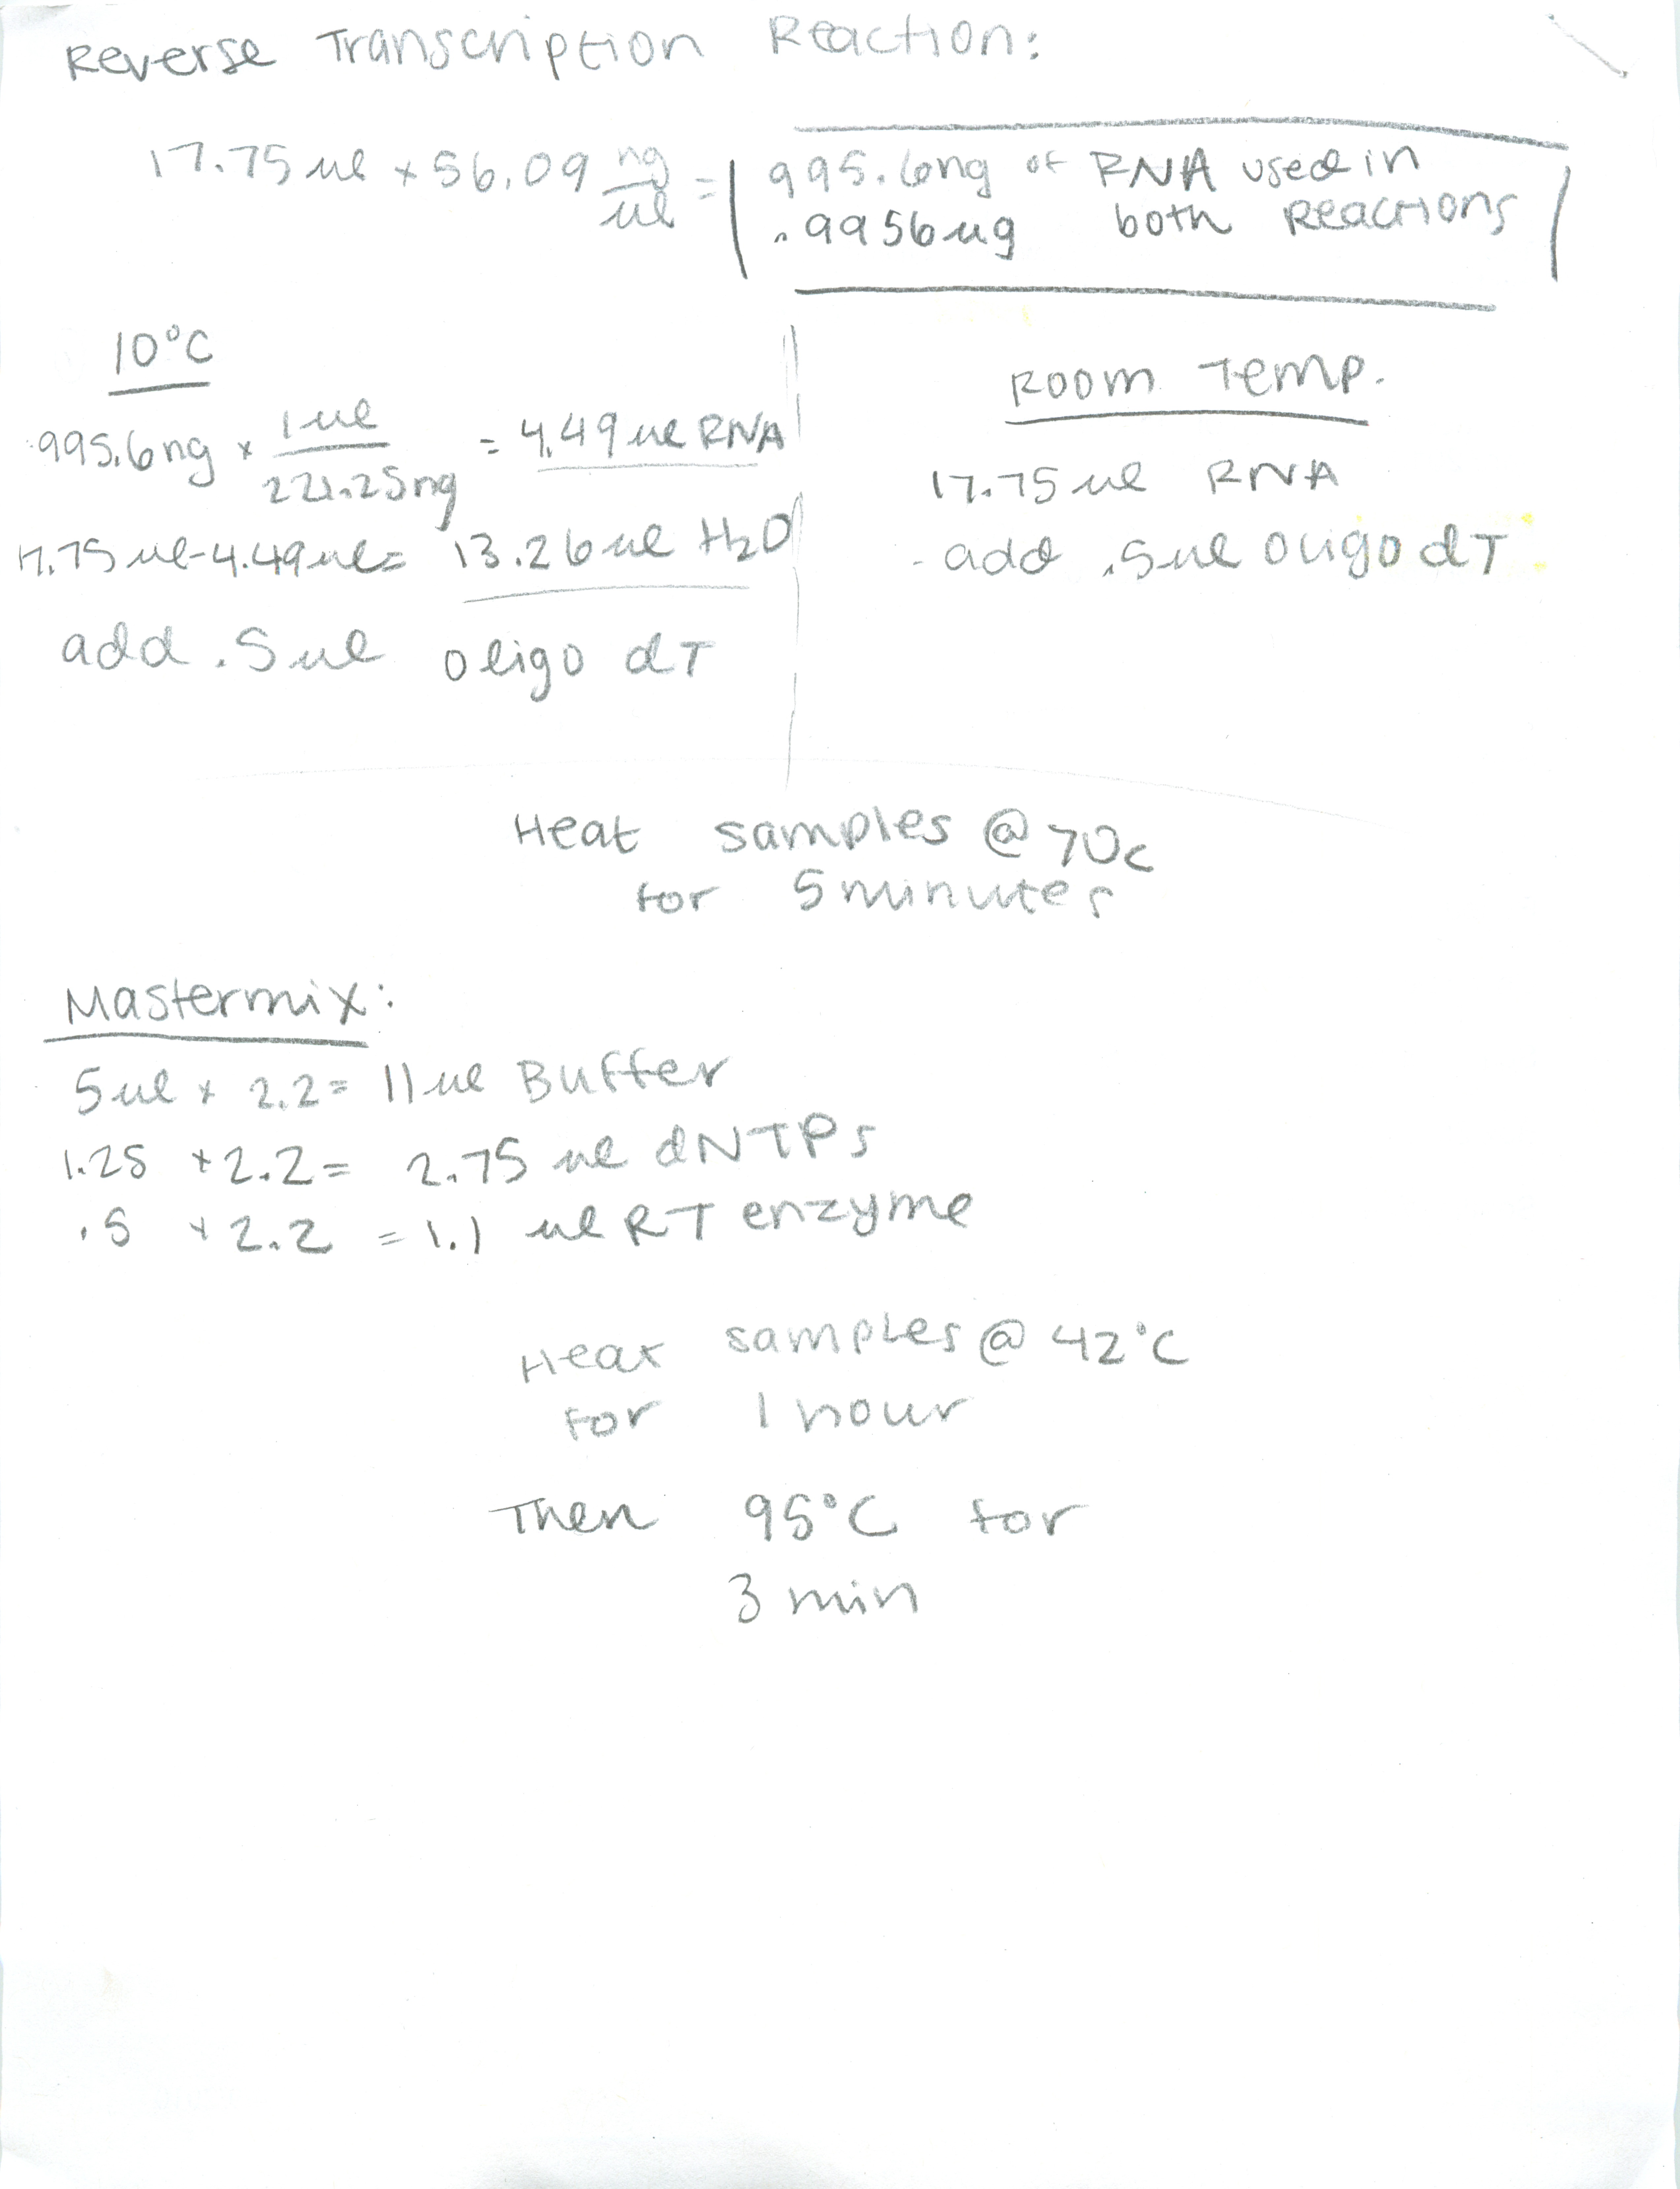 Reverse Transcription Reaction:
17.75 ul x 56.09 ng/ul = 995.6ng of RNA used in
.9956ug both Reactions
10°C
995.6ng x 1ul/221.25ng = 4.49 ul RNA
17.75 ul-4.49ul= 13.26 ul H2O
add .5ul oligo dT
Room Temp.
17.75 ul RNA
- add .5ul oligo dT
Heat samples @ 70c
for 5 minutes
Mastermix:
5ul x 2.2= 11ul Buffer
1.25 x 2.2= 2.75 ul dNTPs
.5 x 2.2 = 1.1 ul RT enzyme
Heat samples @ 42°C
for 1 hour
Then 95°C for
3 min